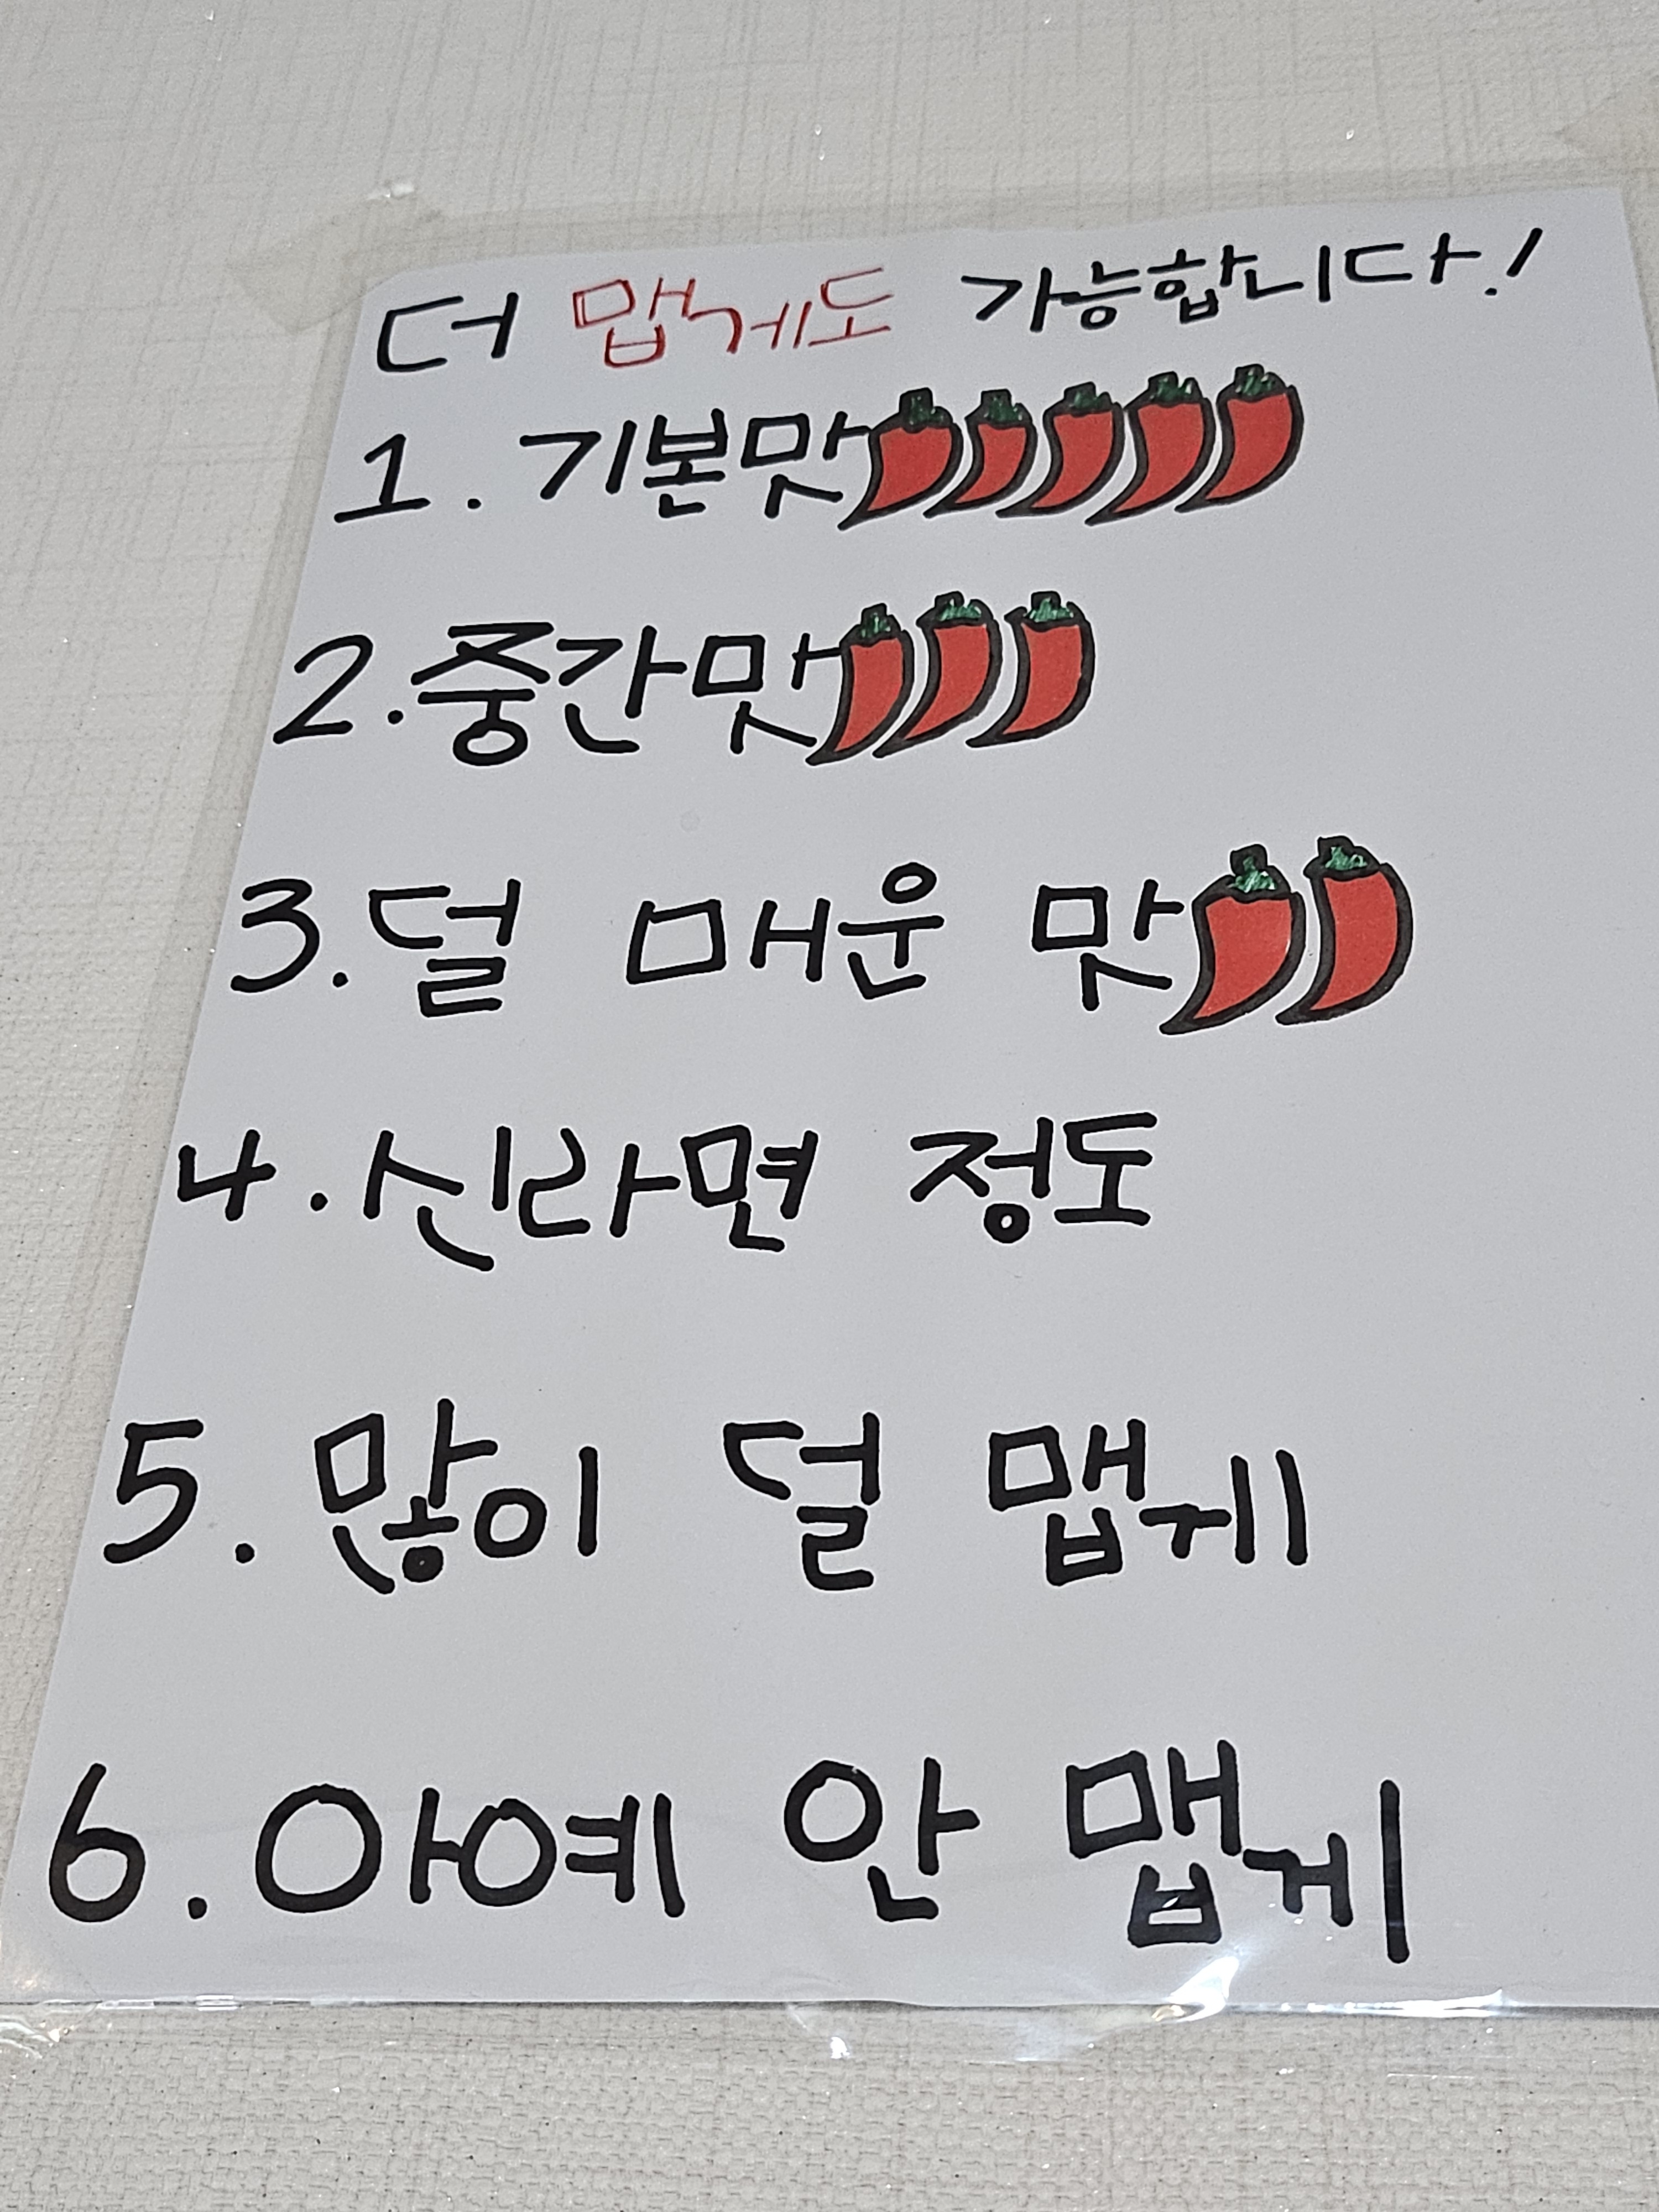 더 맵게도 가능합니다!
1. 기본맛
2. 중간맛
3. 덜 매운 맛
4. 신라면 정도
5. 많이 덜 맵게
6. 아예 안 맵게